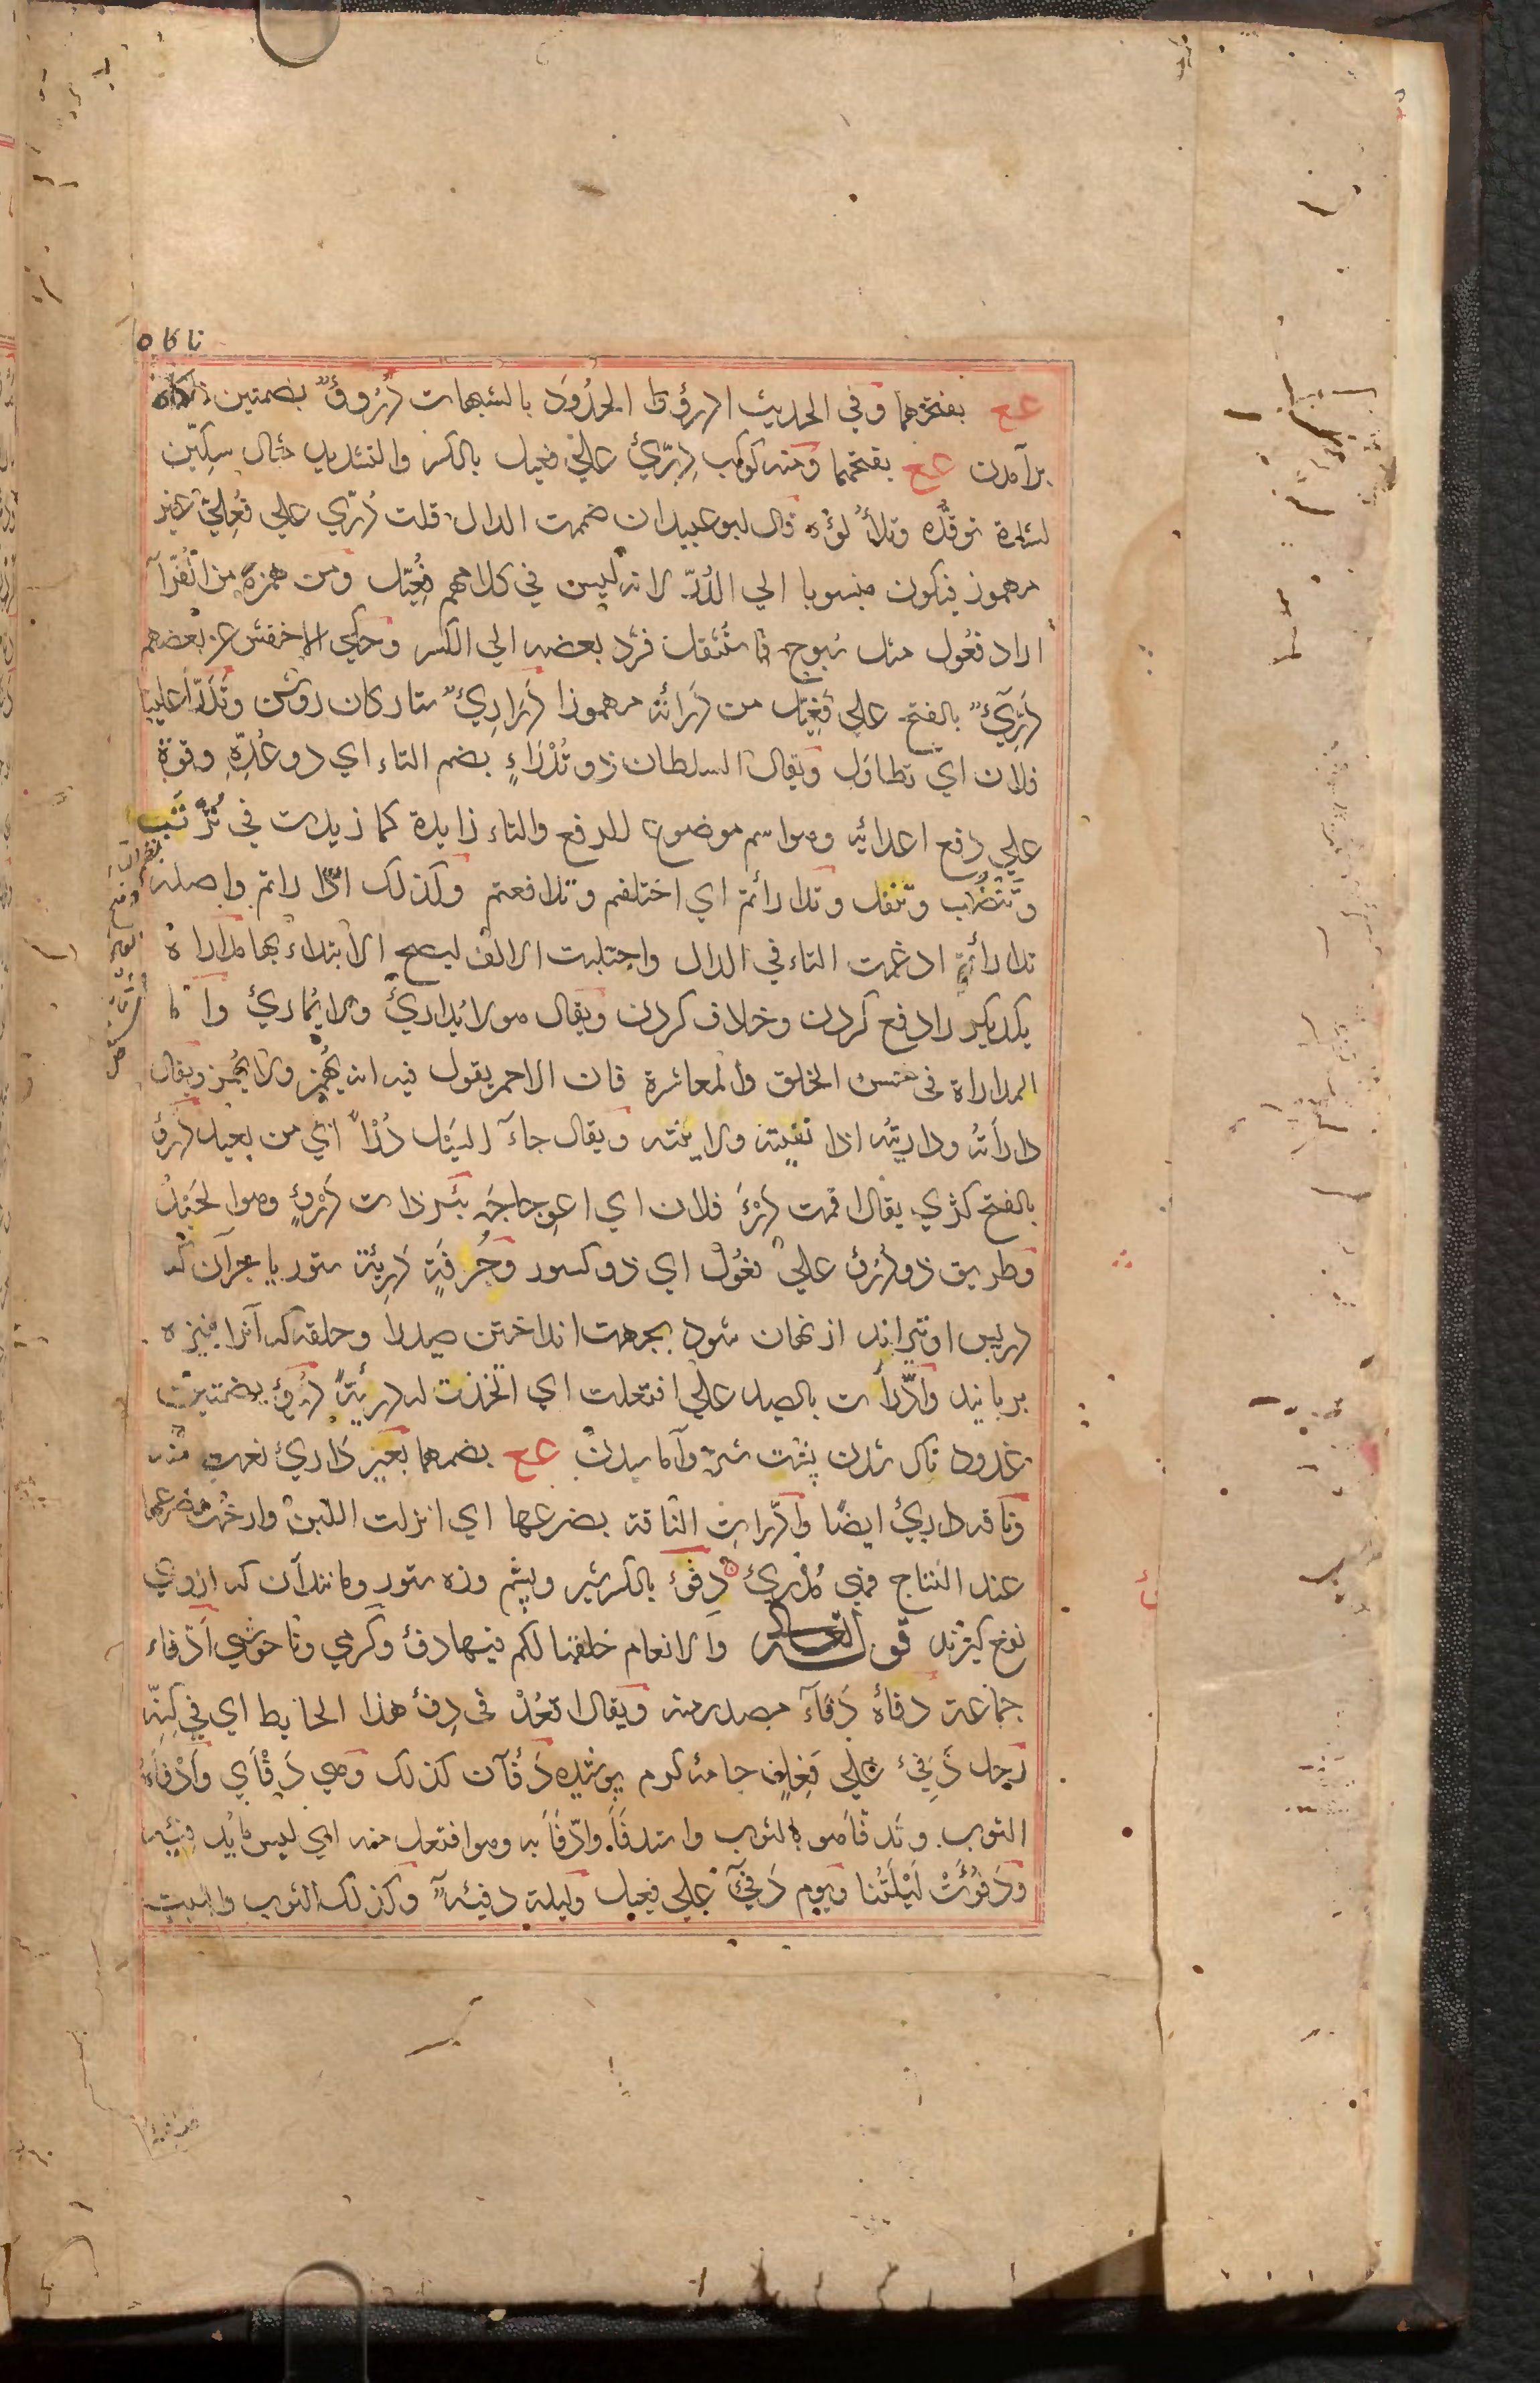 ناکاه
عع بفتحهما وفي الحديث ادرؤا الحدُودَ بالشبهات دُرُوءٌ بضمتين ناكاه
برآمدن عع بفتحهما ومنه كوكب دِرِّيٌ علي فعيل بالكسر والتشديد مثال سكِّين
لشدة توقّده وتلألُؤه قال ابو عبيد ان ضممت الدال قلت دُرّي علي فُعلِيّ غير
مهموز فيكون منسوبا الي الدُرّ لانه ليس في كلامهم فُعِّيل ومن همزه من القُرّآ
اراد فعُول مثل سُبوح فاستُثقل فرَد بعضه الي الكسر وحكي الاخفش عن بعضهم
دَرِّيٌ بالفتح علي فَعِّيل من دَرَأته مهموزا دَرَارِيٌ ستاركان روشن وتَدَرّأ علينا
فلان اي تطاول ويقال السلطان ذو تُدْرَاءٍ بضم التاء اي ذو عُدّةٍ وقوة
علي دفع اعدائه وهو اسم موضوع للدفع والتاء زايدة كما زيدت في تُرتَب
وتَنْضُب وتتفل وتدارأتم اي اختلفتم وتدافعتم وكذلك ادّاراتم واصله
تدارأتم ادغمت التاء في الدال واجتلبت الالف ليصح الابتداء بها مداراه
يكديكر را دفع كردن وخلاف كردن ويقال هو لا يُداريُ ولا يُماريُ واما
المداراة في حسن الخلق والمعاشرة فان الاحمر يقول فيه انه يُهمز ولا يُهمز ويقال
دارأتُه وداريتُه اذا اتقيته ولاينته ويقال جاء السَيْل دُرْأً اي من بعيد دَرْءٌ
بالفتح كژي يقال اقمت دَرْءَ فلان اي اعوجاجَه بئر ذات دَرْءٍ وهو الحَيْدُ
وطريق ذو دُرُوءٍ علي فعُول اي ذو كسور وجُرفَةٍ دَرِيئة ستور يا جز آن كه
در پس او تيرانداز نهان شود بجهت انداختن صيد را وحلقه كه آنرا بنيزه
بربايند وادّرأت بالصيد علي افتعلت اي اتخذت له دريئةً دُرُوءٌ بضمتين
غدود ناك شدن پشت شتر وآماسيدن عع بضمهما بعير داريُ نعت منه
وناقه داريُ ايضًا وادرات الناقة بضرعها اي انزلت اللبن وارخت ضرعها
عند النتاج فهي مُدْريُ دِفْءٌ بالكسر شير وپشم وزه ستور ومانند آن كه از وي
نفع كيرند قوله تعالي والانعام خلقها لكم فيها دفء وكرمي وناخوشي اَدْفاء
جماعة دفأه دَفَآءَ مصدر منه ويقال اقعُدْ في دِفْءِ هذا الحايط اي في كِنّه
رجل دَفِيءٌ علي فَعِلٍ جامهٔ كرم پوشيده دَفْآن كذلك وهي دَفْأي واَدْفاَه
الثوب وتدفأ هو بالثوب واستدفأ وادّفأ به وهو افتعل منه اي لبس ما يُدفِئُه
ودَفُؤَتْ لَيْلَتُنا ويوم دَفِيٌ علي فعيل وليلة دفيئة وكذلك الثوب والبيت